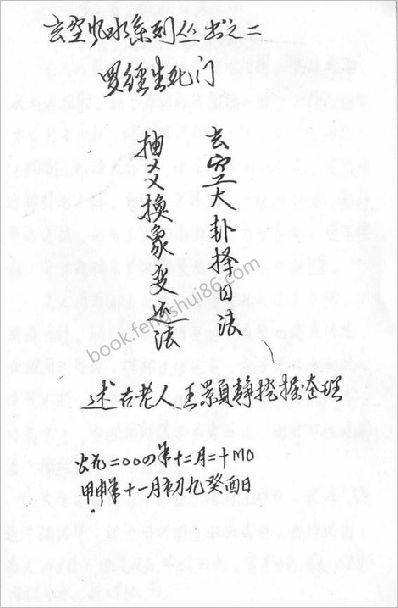 玄空风水系列丛书之二
罗经生死门
玄空大卦择日法
抽爻换象变法
述古老人王静挖掘整理
公元二000四年十二月二十
甲申年十一月初九癸酉日
book.fengshui86.com